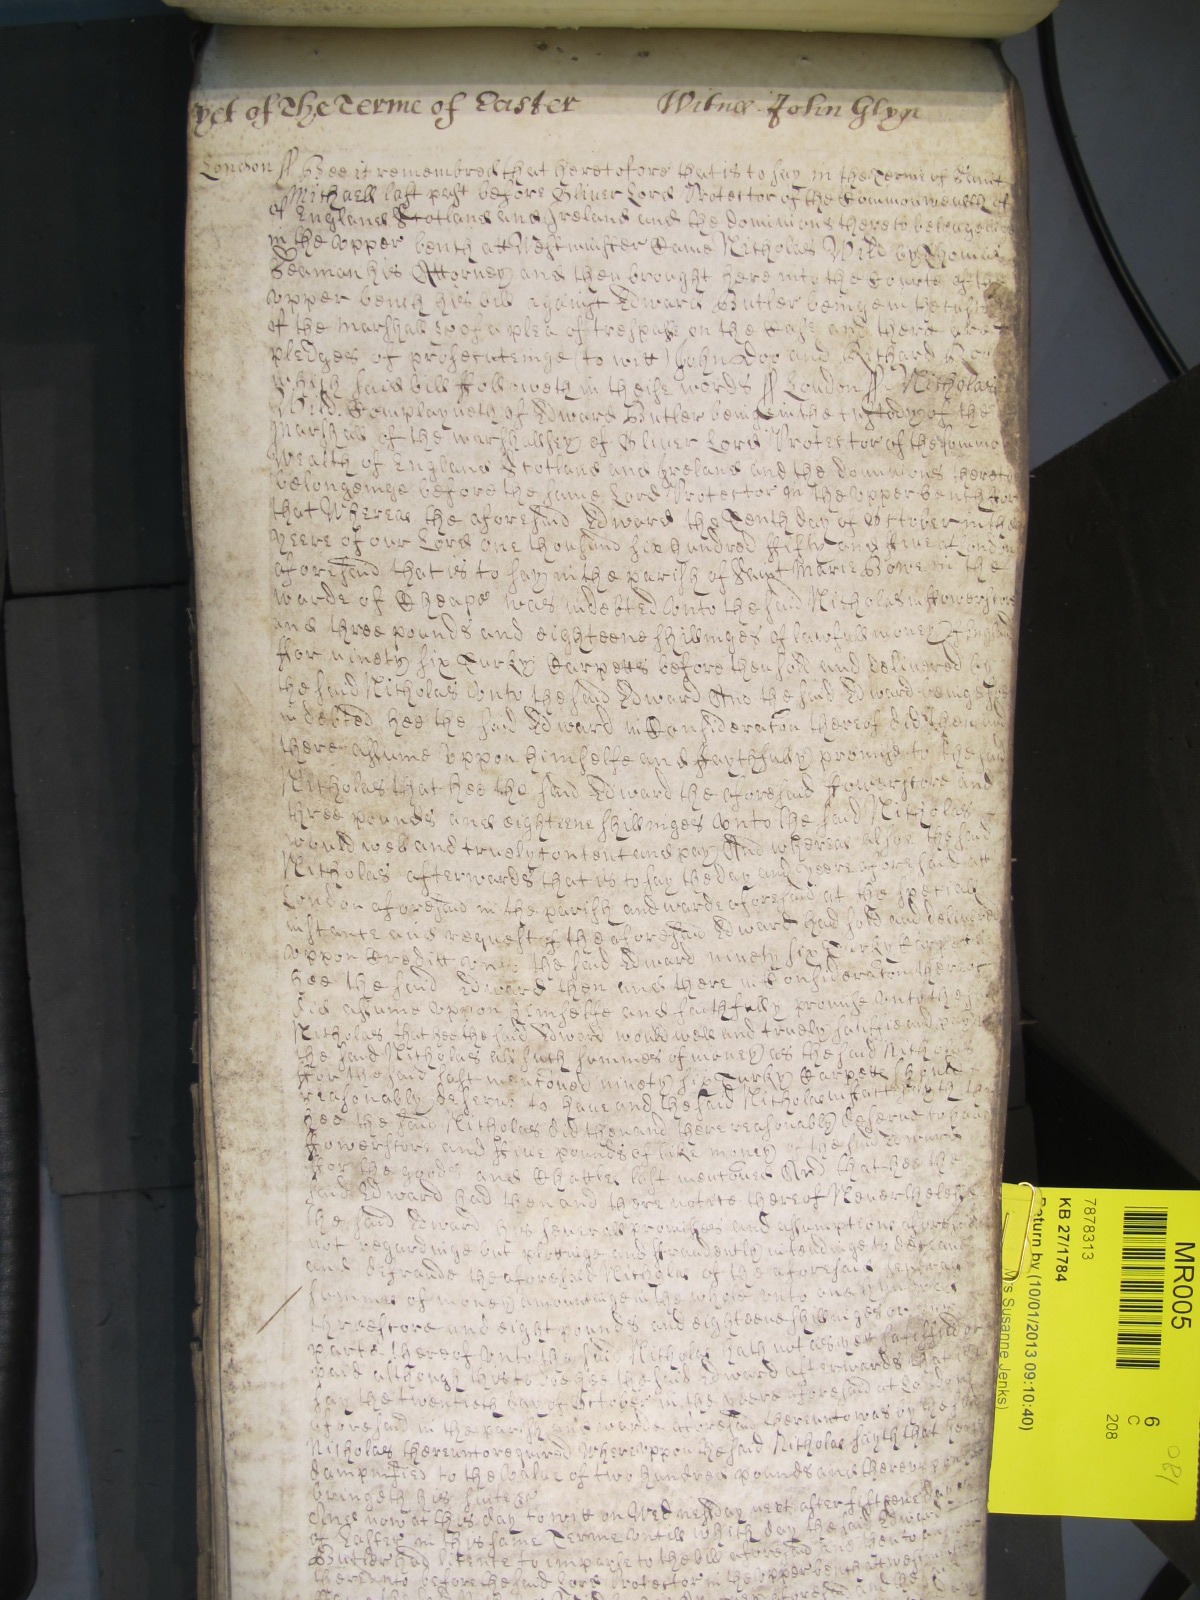 yet of The Terme of Easter Witnes John Glyn
London // Bee it remembred that heretofore that is to say in the Terme of Saint
Michaell last past before Oliver Lord Protector of the Commonwealth of
of England Scotland and Ireland and the dominions thereto belongeinge
in the upper bench att Westminster Came Nicholas Wild by Thomas
Seaman his Attorney and then brought here into the Courte of the
upper bench his bill against Edward Butler beinge in the custody
of the Marshall &c of a plea of trespasse on the Case and there are
pledges of prosecuteinge (to witt) John Doo and Richard Roo
which said bill followeth in theise words // London // Nicholas
Wild Complayneth of Edward Butler beinge in the Custody of the
Marshall of the marshallsey of Oliver Lord Protector of the Common
wealth of England Scotland and Ireland and the dominions thereto
belongeinge before the same Lord Protector in the upper bench For
that Whereas the aforesaid Edward the Tenth day of October in the
yeere of our Lord one thousand six hundred fifty and five at London
aforesaid that is to say in the parish of Saint Marie Bowe in the
warde of Cheape was indebted unto the said Nicholas in fowerscore
and three pounds and eighteene shillinges of lawfull money of England
ffor ninety six Turky Carpetts before then sold and delivered by
the said Nicholas unto the said Edward And the said Edward beinge soe
indebted hee the said Edward in Consideration thereof did then and
there assume uppon himselfe and faythfully promise to the said
Nicholas that hee the said Edward the aforesaid fowerscore and
three pounds and eighteene shillinges unto the said Nicholas
would well and truely content and pay And whereas alsoe the said
Nicholas afterwards that is to say the day and yeere aforesaid att
London aforesaid in the parish and warde aforesaid at the speciall
instance and request of the aforesaid Edward had sold and delivered
uppon Creditt unto the said Edward ninety six Turky Carpetts
hee the said Edward then and there in Consideration thereof
did assume uppon himselfe and faithfully promise unto the said
Nicholas that hee the said Edward would well and truely satisfie and pay
the said Nicholas all such summes of money as the said Nicholas
for the said last mentoned ninety six Turky Carpetts should
reasonably deserve to have and the said Nicholas in fact sayth that
hee the said Nicholas did then and there reasonably deserve to have
fowerscore and five pounds of like money of the said Edward
for the goods and Chattles last mentoned And that hee the
said Edward had then and there notice thereof Neverthelesse
the said Edward his severall promises and assumptions aforesaid
not regardinge but plottinge and fraudently intendinge to deceave
and defraude the aforesaid Nicholas of the aforesaid severall
summes of money amountinge in the whole unto one hundred
threescore and eight pounds and eighteene shillinges or any
parte thereof unto the said Nicholas hath not as yet satisfied or
paid although thus to doe hee the said Edward afterwards that is to
say the twentieth day of October in the yeere aforesaid at London
aforesaid in the parish and warde aforesaid thereunto was by the said
Nicholas thereunto required Whereuppon the said Nicholas sayth that hee is
dampnified to the value of two hundred pounds and thereuppon
bringeth his suite &c
And now at this day to witt on Wednesday next after fifteene dayes
of Easter in this same Terme untill which day the said Edward
Butler had licence to imparle to the bill aforesaid and then to
thereunto before the said Lord Protector in the upper bench at Westminster